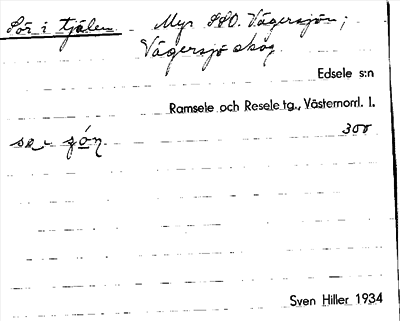 Sör i tjälen Myr SSO. Vägersjön;
Vägersjö skog
Edsele s:n
Ramsele och Resele tg., Västernorrl. l.
300
Sven Hiller 1934